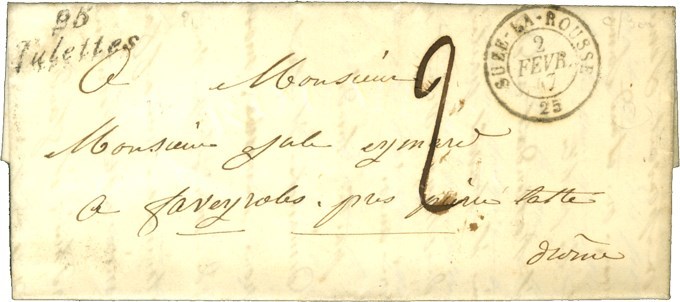 25
Tulettes
SUZE-LA-ROUSSE
2
FEVR.
47
25
2
A Monsieur
Monsieur Jule eymard
a faveyrolas. près pierre latte
drôme